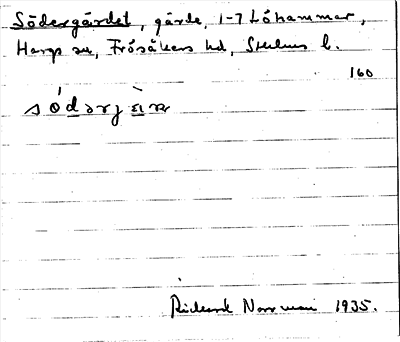 Södergärdet, gärde, 1-7 Löhammar,
Hargs sn, Frösåkers hd, Sthlms l.
160
Rickard Norrman 1935.